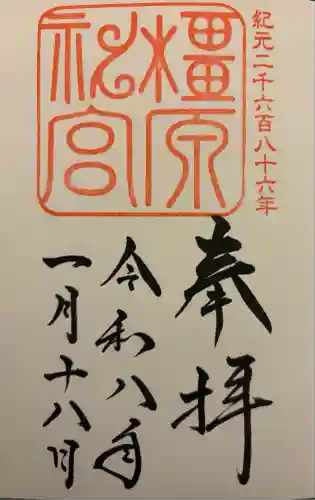 紀元二千六百八十六年
橿原神宮
奉拝
令和八年
一月十八日